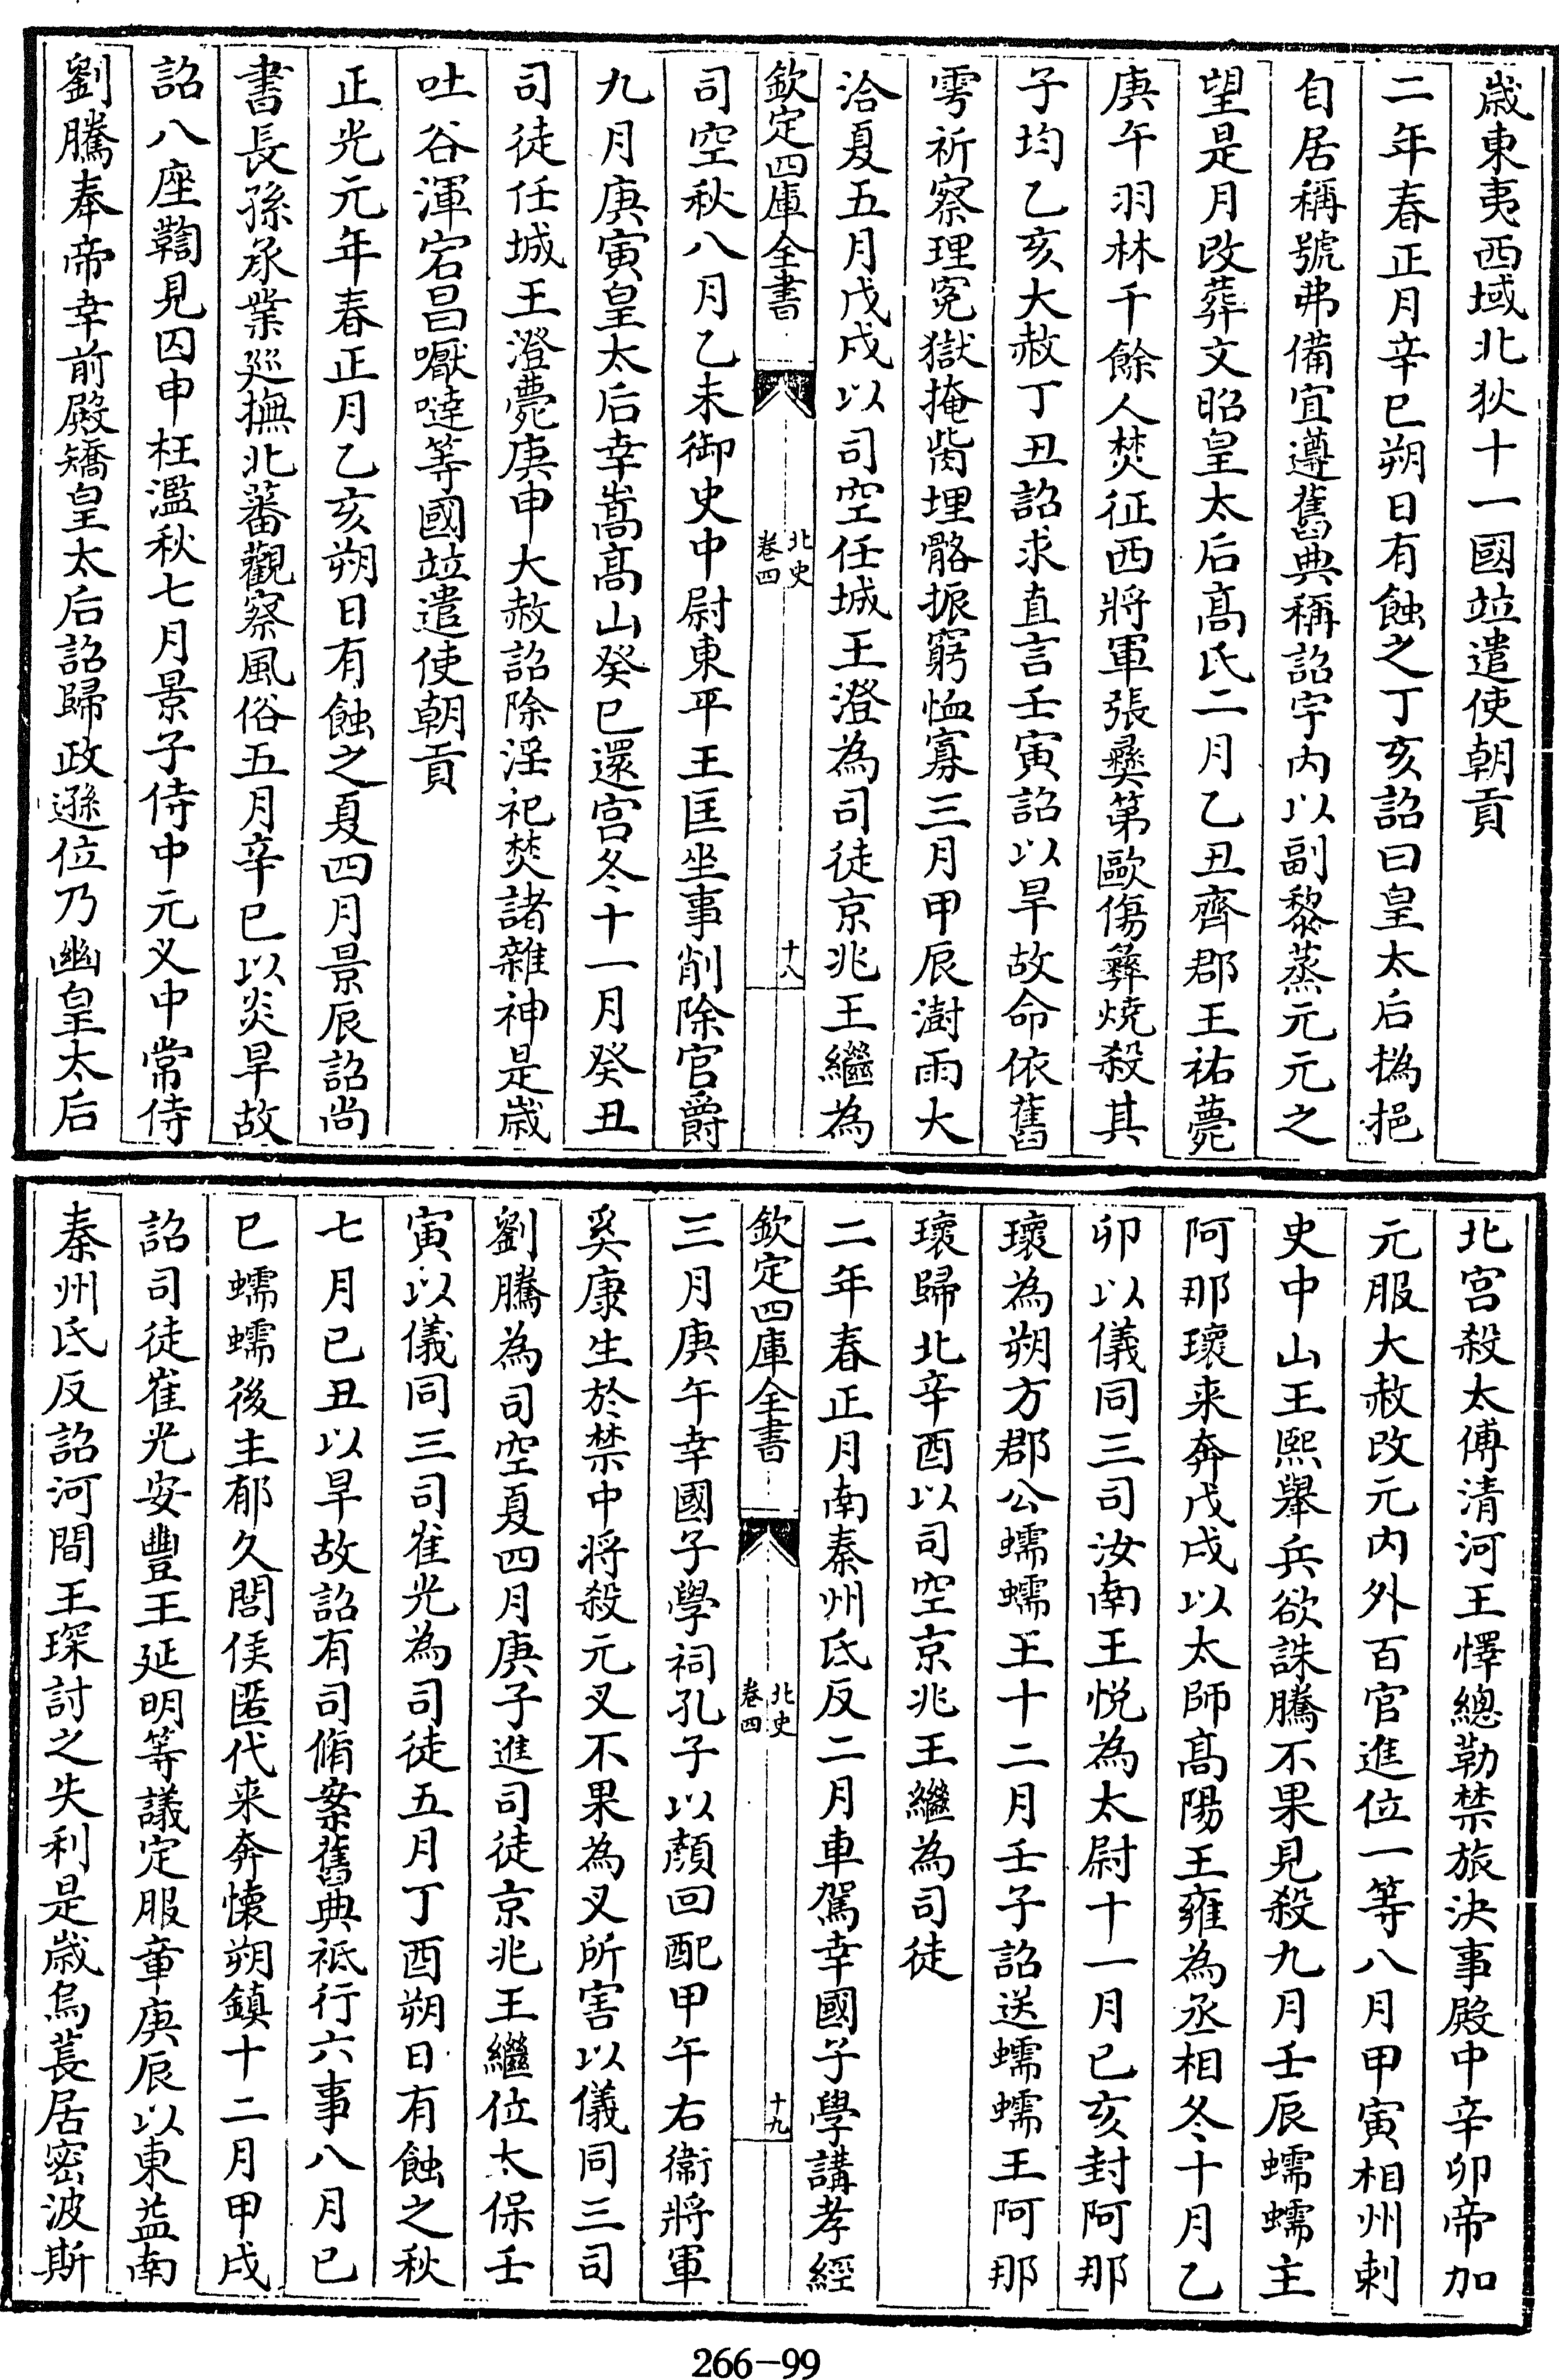 歲東夷西域北狄十一國竝遣使朝貢
二年春正月辛巳朔日有蝕之丁亥詔曰皇太后撝挹
自居稱號弗備宜遵舊典稱詔宇内以副黎蒸元元之
望是月改葬文昭皇太后髙氏二月乙丑齊郡王祐薨
庚午羽林千餘人焚征西將軍張彜第歐傷彜燒殺其
子均乙亥大赦丁丑詔求直言壬寅詔以旱故命依舊
雩祈察理寃獄掩胔埋骼振窮恤寡三月甲辰澍雨大
洽夏五月戊戌以司空任城王澄為司徒京兆王繼為
欽定四庫全書
北史
卷四
十八
司空秋八月乙未御史中尉東平王匡坐事削除官爵
九月庚寅皇太后幸嵩髙山癸巳還宫冬十一月癸丑
司徒任城王澄薨庚申大赦詔除淫祀焚諸雜神是歲
吐谷渾宕昌嚈噠等國竝遣使朝貢
正光元年春正月乙亥朔日有蝕之夏四月景辰詔尚
書長孫承業廵撫北蕃觀察風俗五月辛巳以炎旱故
詔八座鞫見囚申枉濫秋七月景子侍中元义中常侍
劉騰奉帝幸前殿矯皇太后詔歸政遜位乃幽皇太后
北宫殺太傅清河王懌總勒禁旅決事殿中辛卯帝加
元服大赦改元内外百官進位一等八月甲寅相州刺
史中山王熙舉兵欲誅騰不果見殺九月壬辰蠕蠕主
阿那瓌来奔戊戌以太師髙陽王雍為丞相冬十月乙
卯以儀同三司汝南王悦為太尉十一月已亥封阿那
瓌為朔方郡公蠕蠕王十二月壬子詔送蠕蠕王阿那
瓌歸北辛酉以司空京兆王繼為司徒
二年春正月南秦州氐反二月車駕幸國子學講孝經
欽定四庫全書
北史
卷四
十九
三月庚午幸國子學祠孔子以顔回配甲午右衞將軍
奚康生於禁中将殺元叉不果為叉所害以儀同三司
劉騰為司空夏四月庚子進司徒京兆王繼位太保壬
寅以儀同三司崔光為司徒五月丁酉朔日有蝕之秋
七月已丑以旱故詔有司脩案舊典祗行六事八月已
巳蠕蠕後主郁久閭侯匿代来奔懐朔鎮十二月甲戌
詔司徒崔光安豐王延明等議定服章庚辰以東益南
秦州氐反詔河間王琛討之失利是歲烏萇居密波斯
266-99